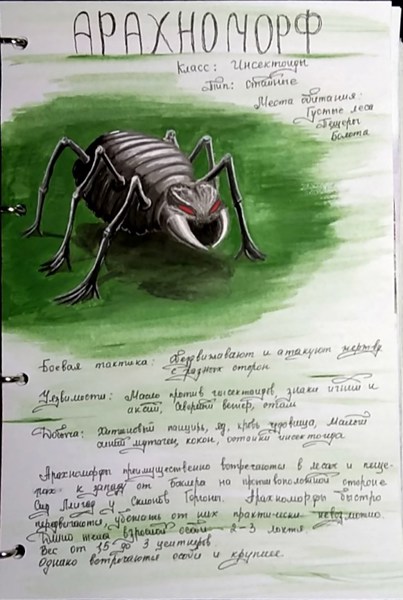 АРАХНОМОРФ
Класс: Инсектоиды
Тип: стайные
Места обитания:
Густые леса
Пещеры
Болота
Боевая тактика: Обездвиживают и атакуют жертву
с разных сторон
Уязвимости: Масло против инсектоидов, знаки игний и
аксий, Северный ветер, отам
Добыча: Хитиновый панцирь, яд, кровь чудовища, Малый
мутаген, кокон, останки инсектоида
Арахноморфы преимущественно встречаются в лесах и пеще-
рах к западу от Боклера на противоположной стороне
Сид Ллигад у склонов Горгоны. Арахноморфы быстро
передвигаются, убежать от них практически невозможно.
Длина тела взрослой особи 2-3 локтя
Вес от 1,5 до 3 центнеров
Однако встречаются особи и крупнее.